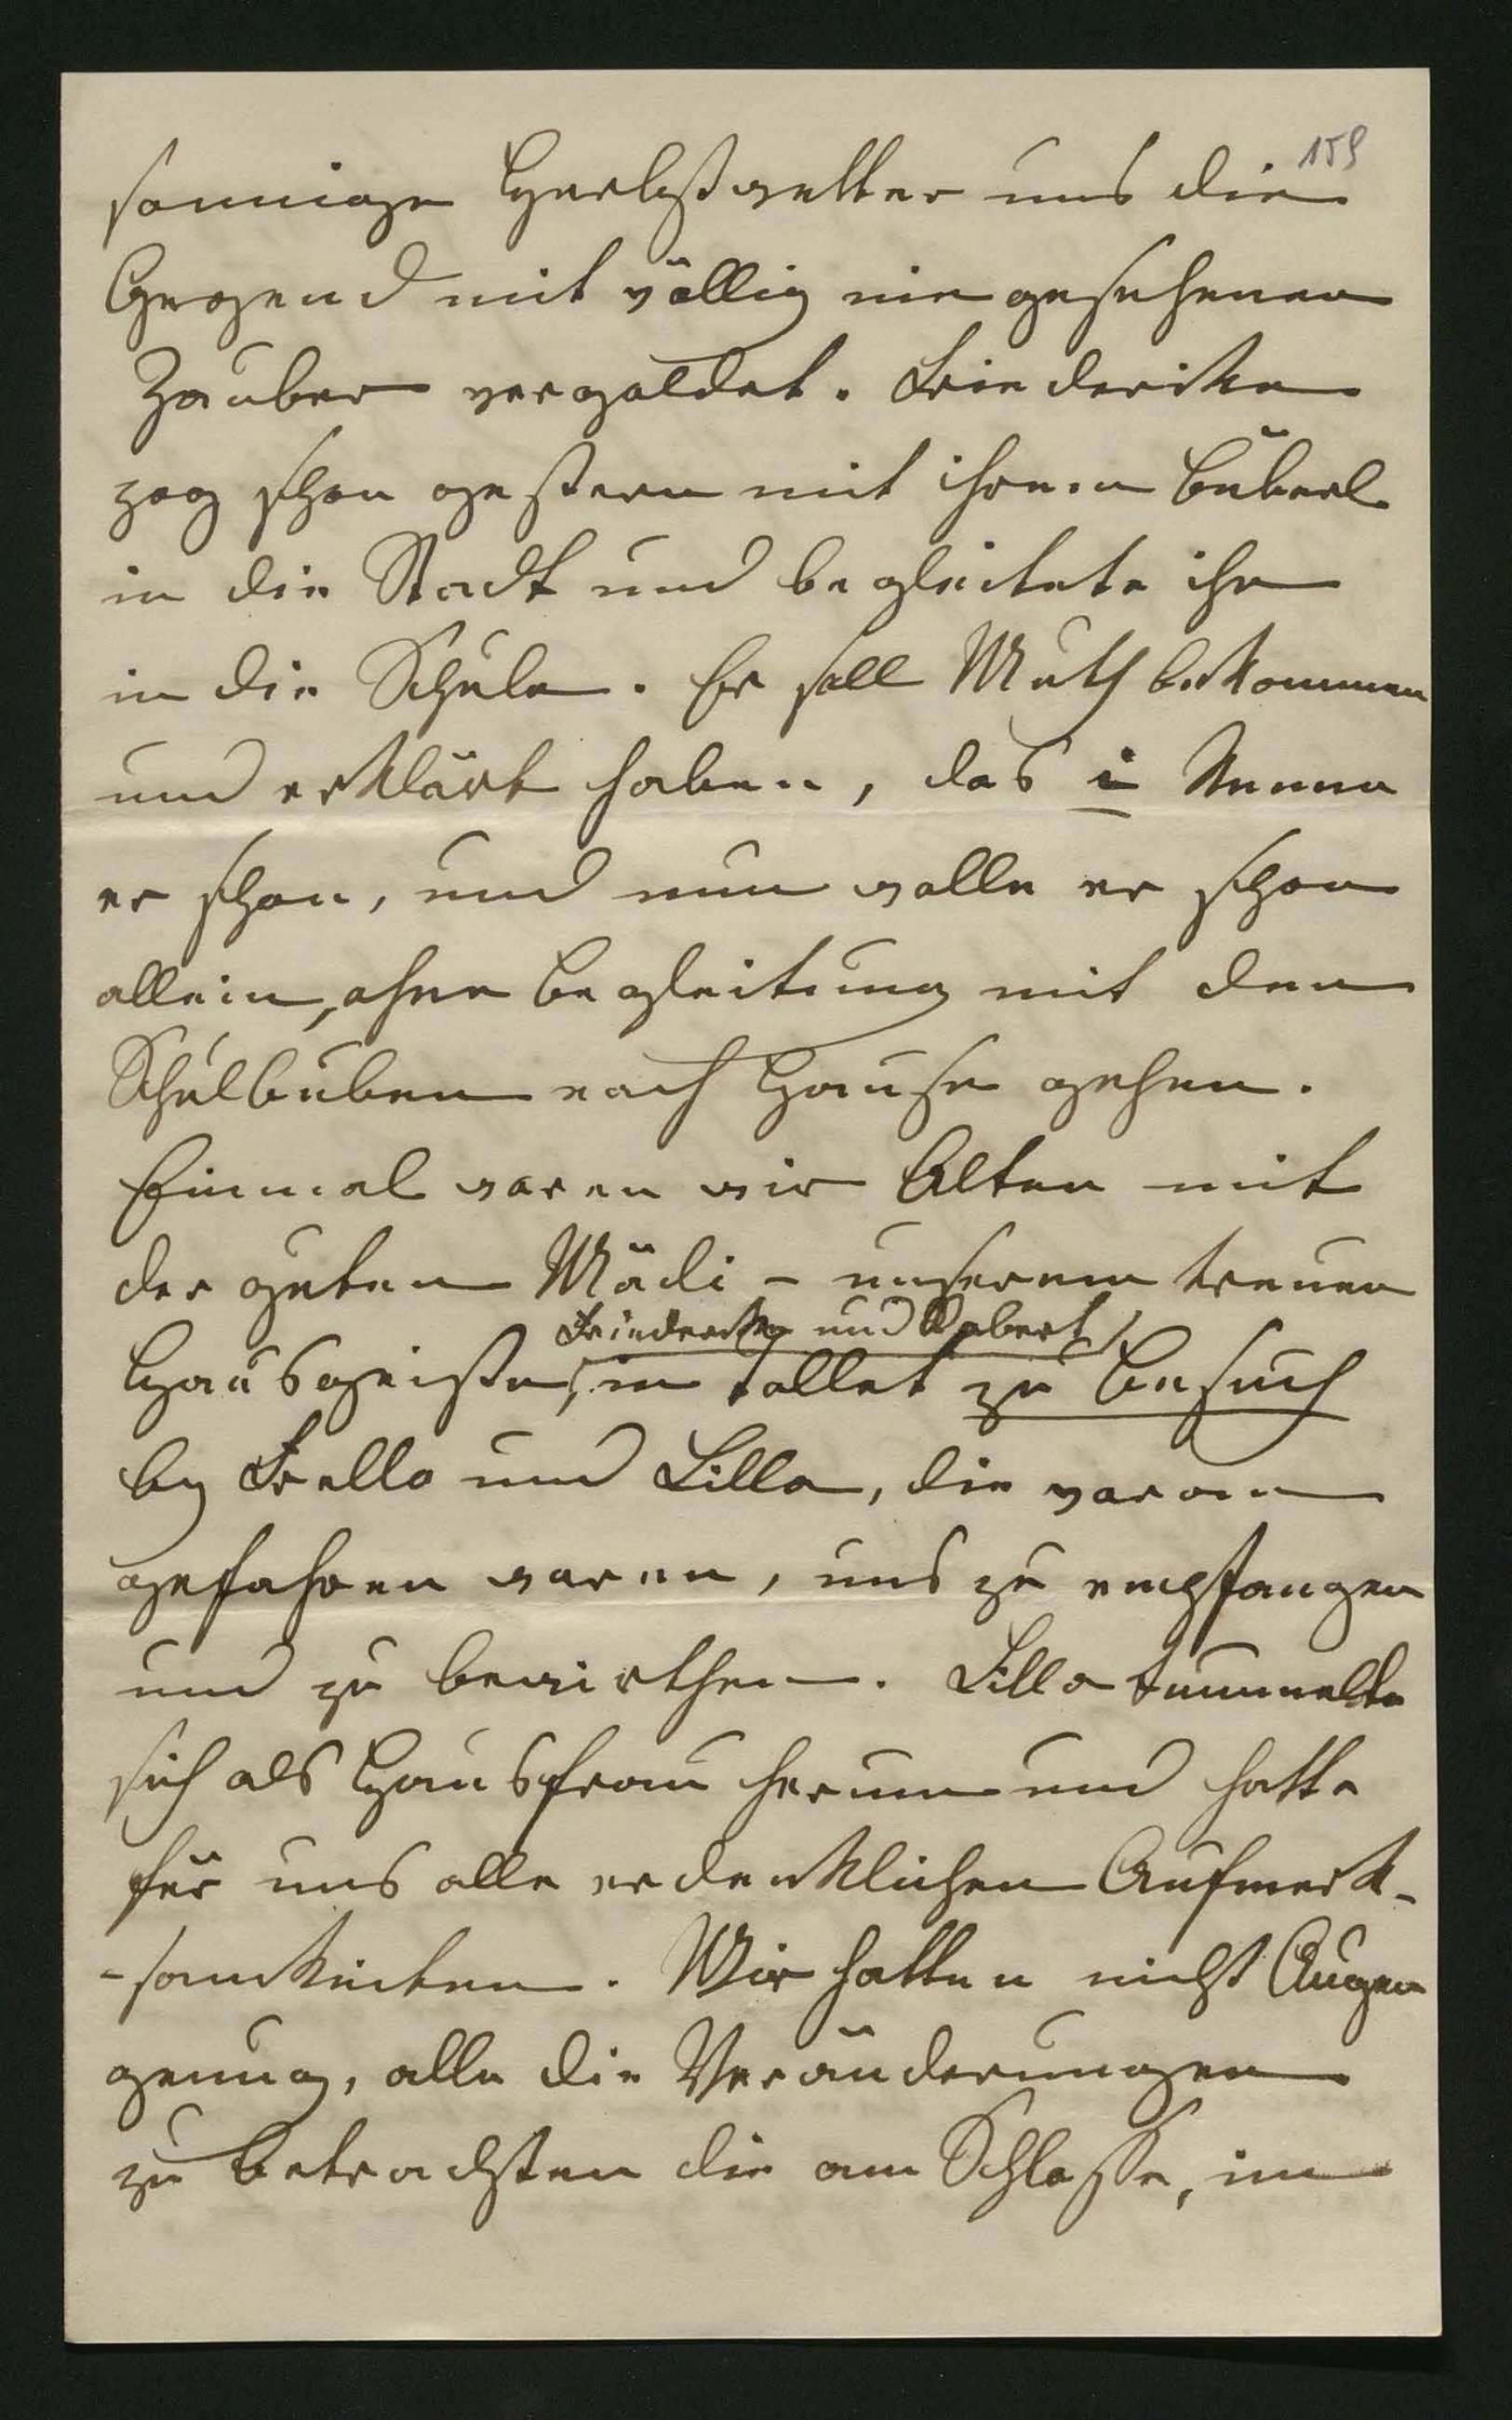 159
sonnige Herbstwetter uns die
Gegend mit völlig nie gesehenen
Zauber vergoldet. Friederike
zog schon gestern mit ihrem Büberl
in die Stadt und begleitete ihn
in die Schule. Er soll Muth bekommen
und erklärt haben, das i kenne
er schon, und nun wolle er schon
allein, ohne Begleitung mit den
Schulbuben nach Hause gehen.
Einmal waren wir Alten mit
der guten Mädi – unserem treuen
Friederike und Robert
Hausgeiste, in Tollet zu Besuch
by Frello und Lilla, die voran
gefahren waren, uns zu empfangen
und zu bewirthen. Lilla tummelte
sich als Hausfrau herum und hatte
für uns alle erdenklichen Aufmerk-
-samkeiten. Wir hatten nicht Augen
genug, alle die Veränderungen
zu betrachten die am Schloße, im